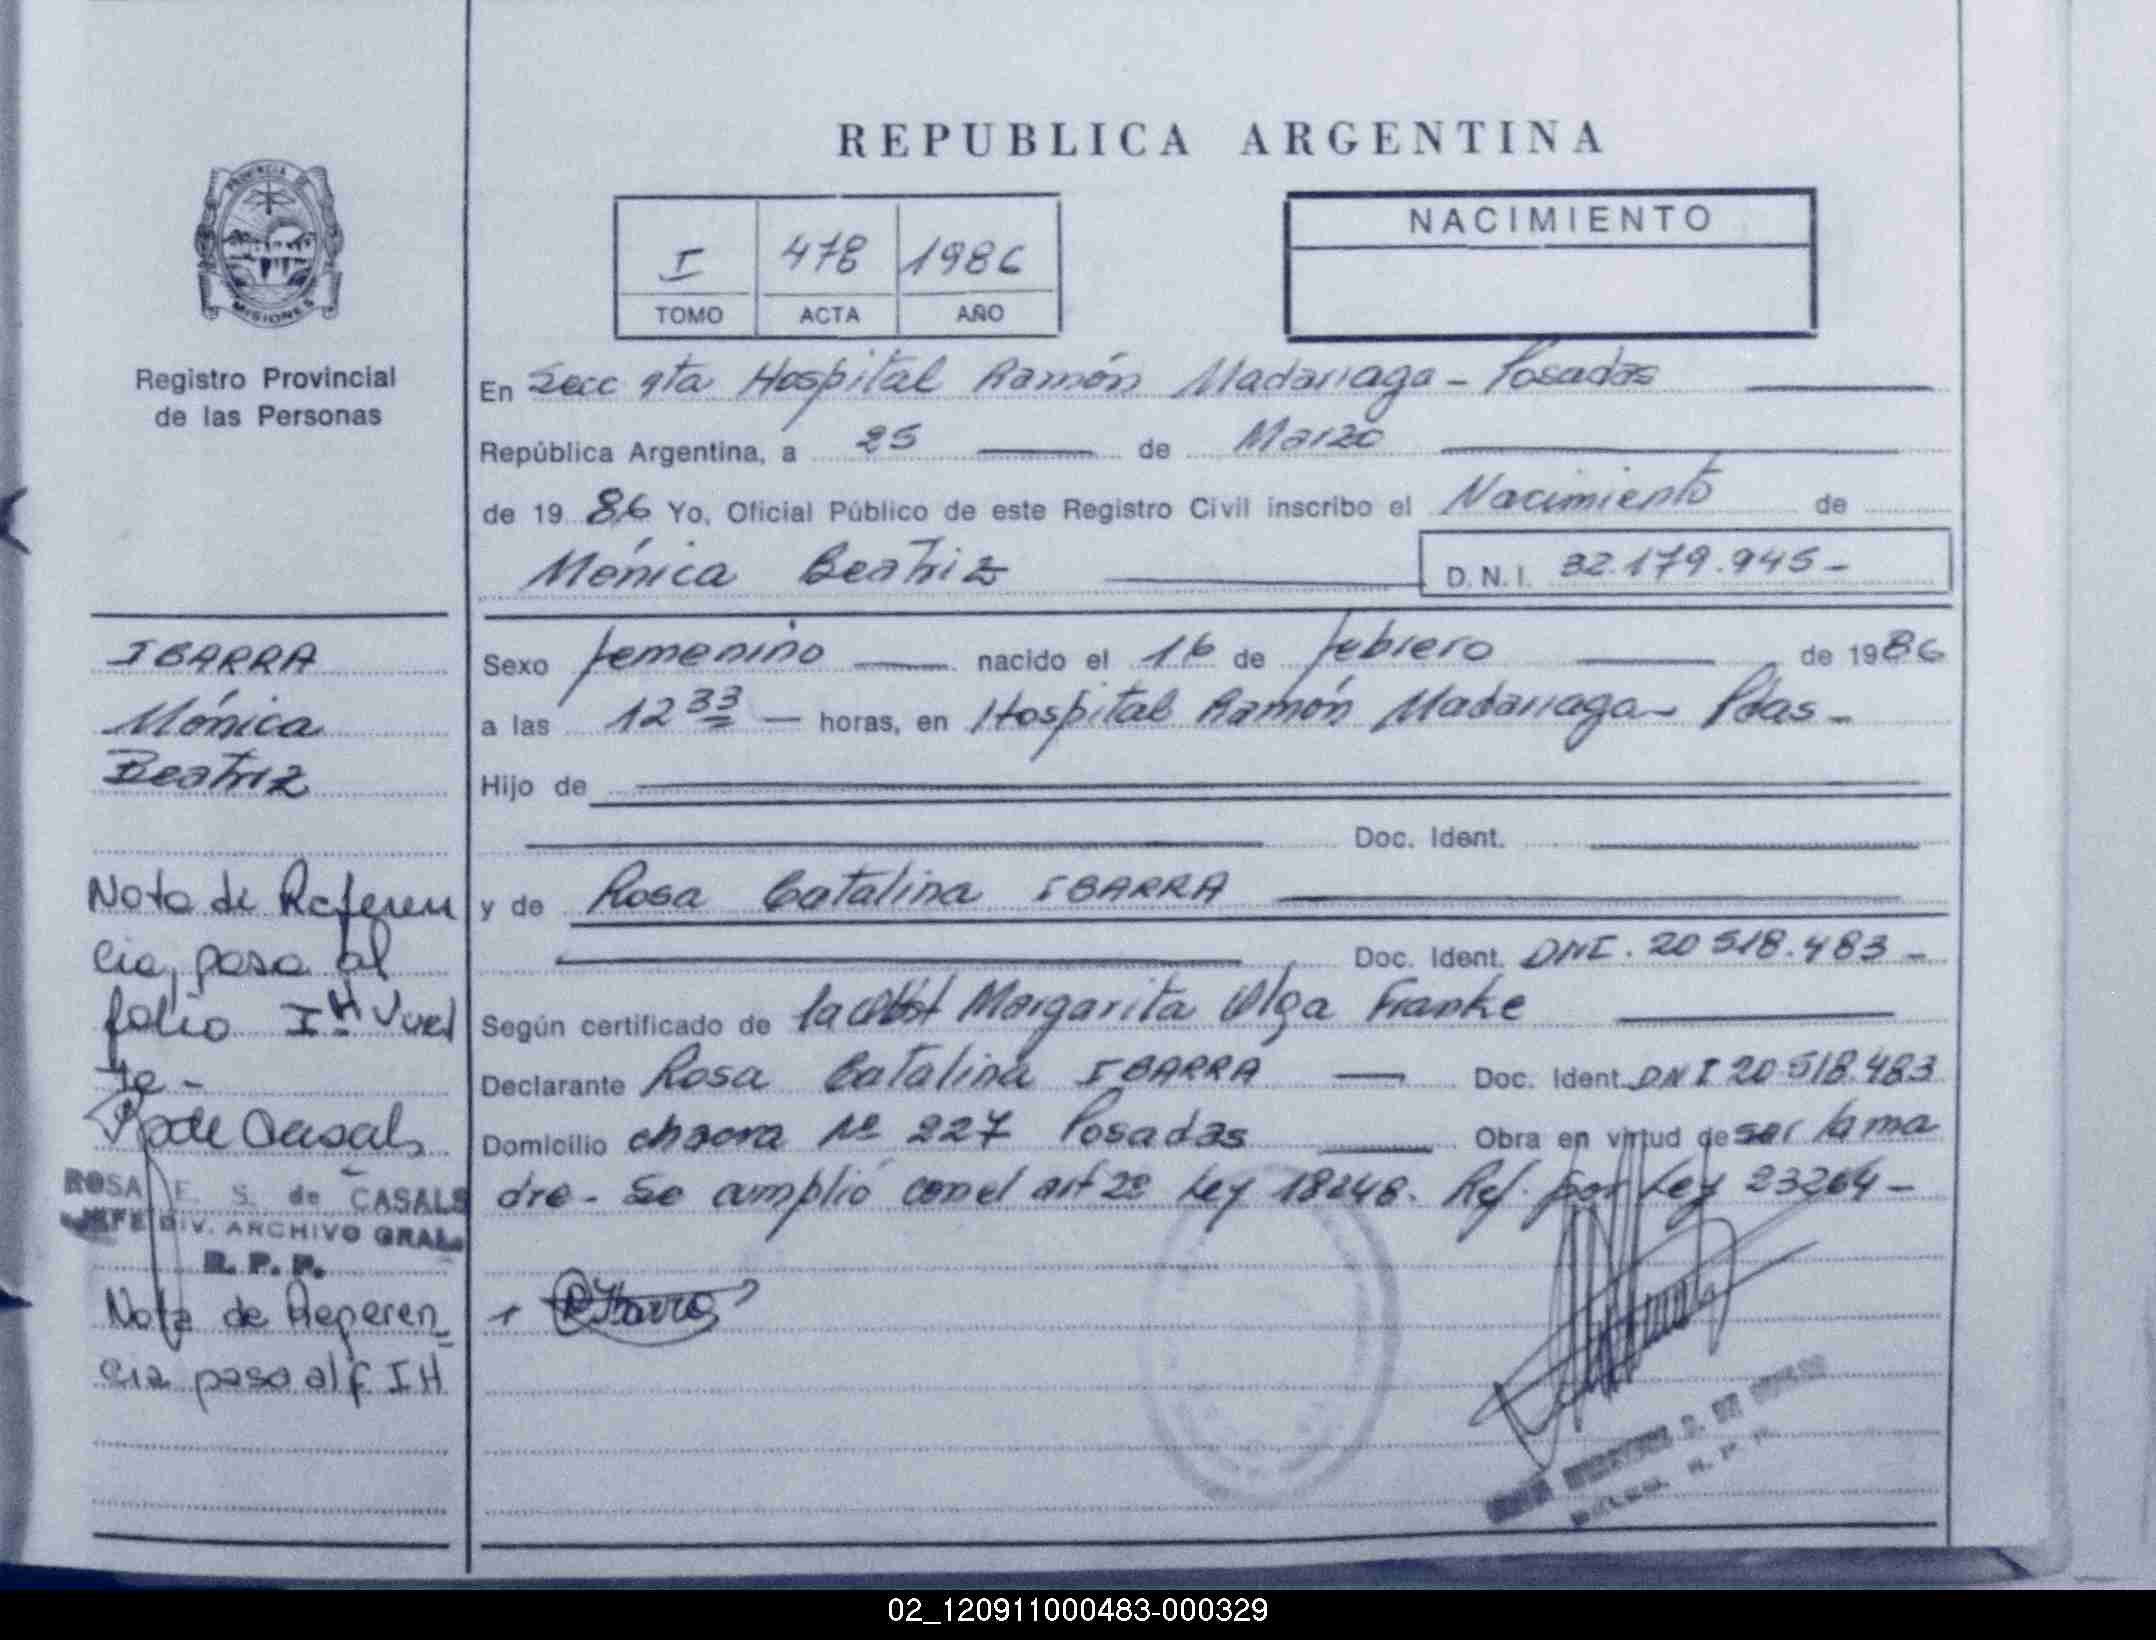 REPUBLICA ARGENTINA
PROVINCIA DE
MISIONES
Registro Provincial
de las Personas
I 478 1986
TOMO ACTA AÑO
NACIMIENTO
En Secc 9ta Hospital Ramón Madariaga - Posadas
República Argentina, a 25 de Marzo
de 19 86 Yo, Oficial Público de este Registro Civil inscribo el Nacimiento de
Mónica Beatriz D.N.I. 32.179.945-
IBARRA
Mónica
Beatriz
Sexo femenino nacido el 16 de febrero de 1986
a las 12 33 horas, en Hospital Ramón Madariaga - Pdas -
Hijo de
Doc. Ident.
y de Rosa Catalina IBARRA
Doc. Ident. DNI. 20 518.483 -
Según certificado de la Obst Margarita Olga Franke
Declarante Rosa Catalina IBARRA Doc. Ident DNI 20 518.483
Domicilio chacra Nº 227 Posadas Obra en virtud de ser la ma
dre - Se cumplió con el art 2º Ley 18248. Ref. por Ley 23264 -
Nota de Referen
cia, pasa al
folio IH Vuel
ta -
R de Casals
ROSA E. S. de CASALS
JEFE DIV. ARCHIVO GRAL.
R. P. P.
Nota de Referen_
cia pasa al f IH
R Ibarra
02_120911000483-000329